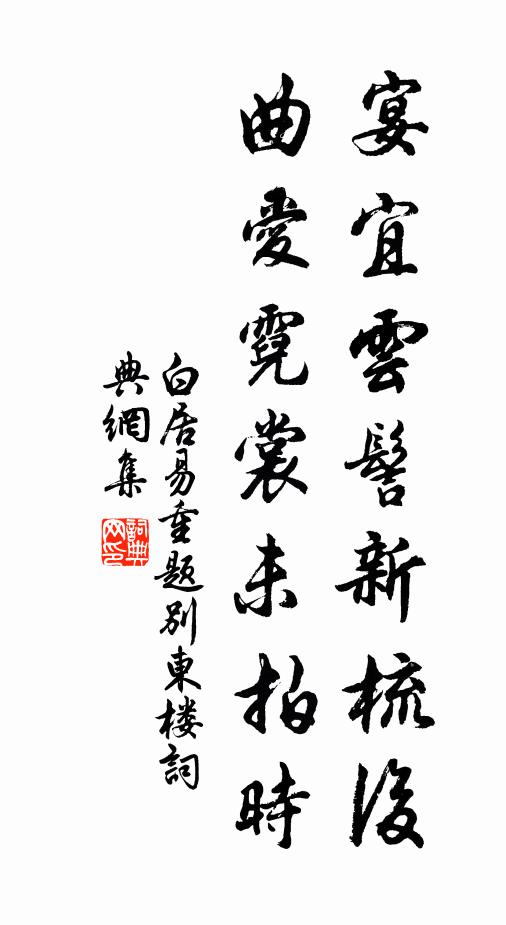 宴宜雲髻新梳後
曲愛霓裳未拍時
白居易重題别東楼詞
典網集
詞典网印